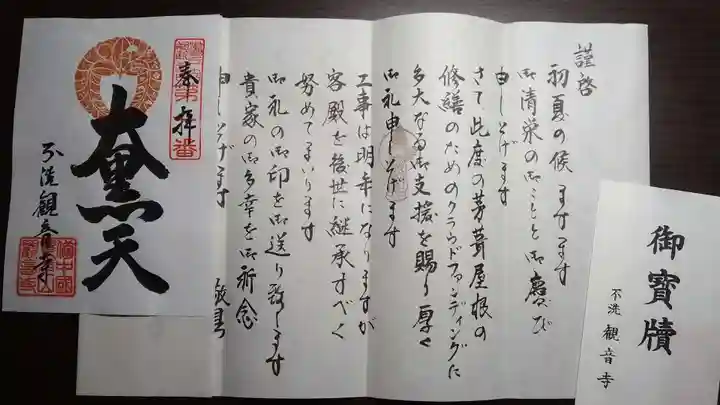 謹啓
初夏の候ますます
御清栄の御ことと御慶び
申し上げます
さて此度の茅葺屋根の
修繕のためのクラウドファンディングに
多大なる御支援を賜り厚く
御礼申し上げます
工事は明年になりますが
客殿を後世に継承すべく
努めてまいります
御礼の御印を御送り致します
貴家の御多幸を御祈念
申し上げます
敬具
奉拝
大黒天
不洗観音寺
御寶牘
不洗観音寺